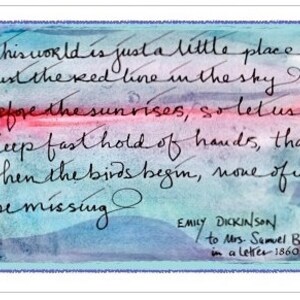 his world is just a little place
ust the red line in the sky
efore the sun rises, so let us
eep fast hold of hands, tha
hen the birds begin, none of u
e missing
EMILY DICKINSON
to Mrs. Samuel B
in a letter 1860